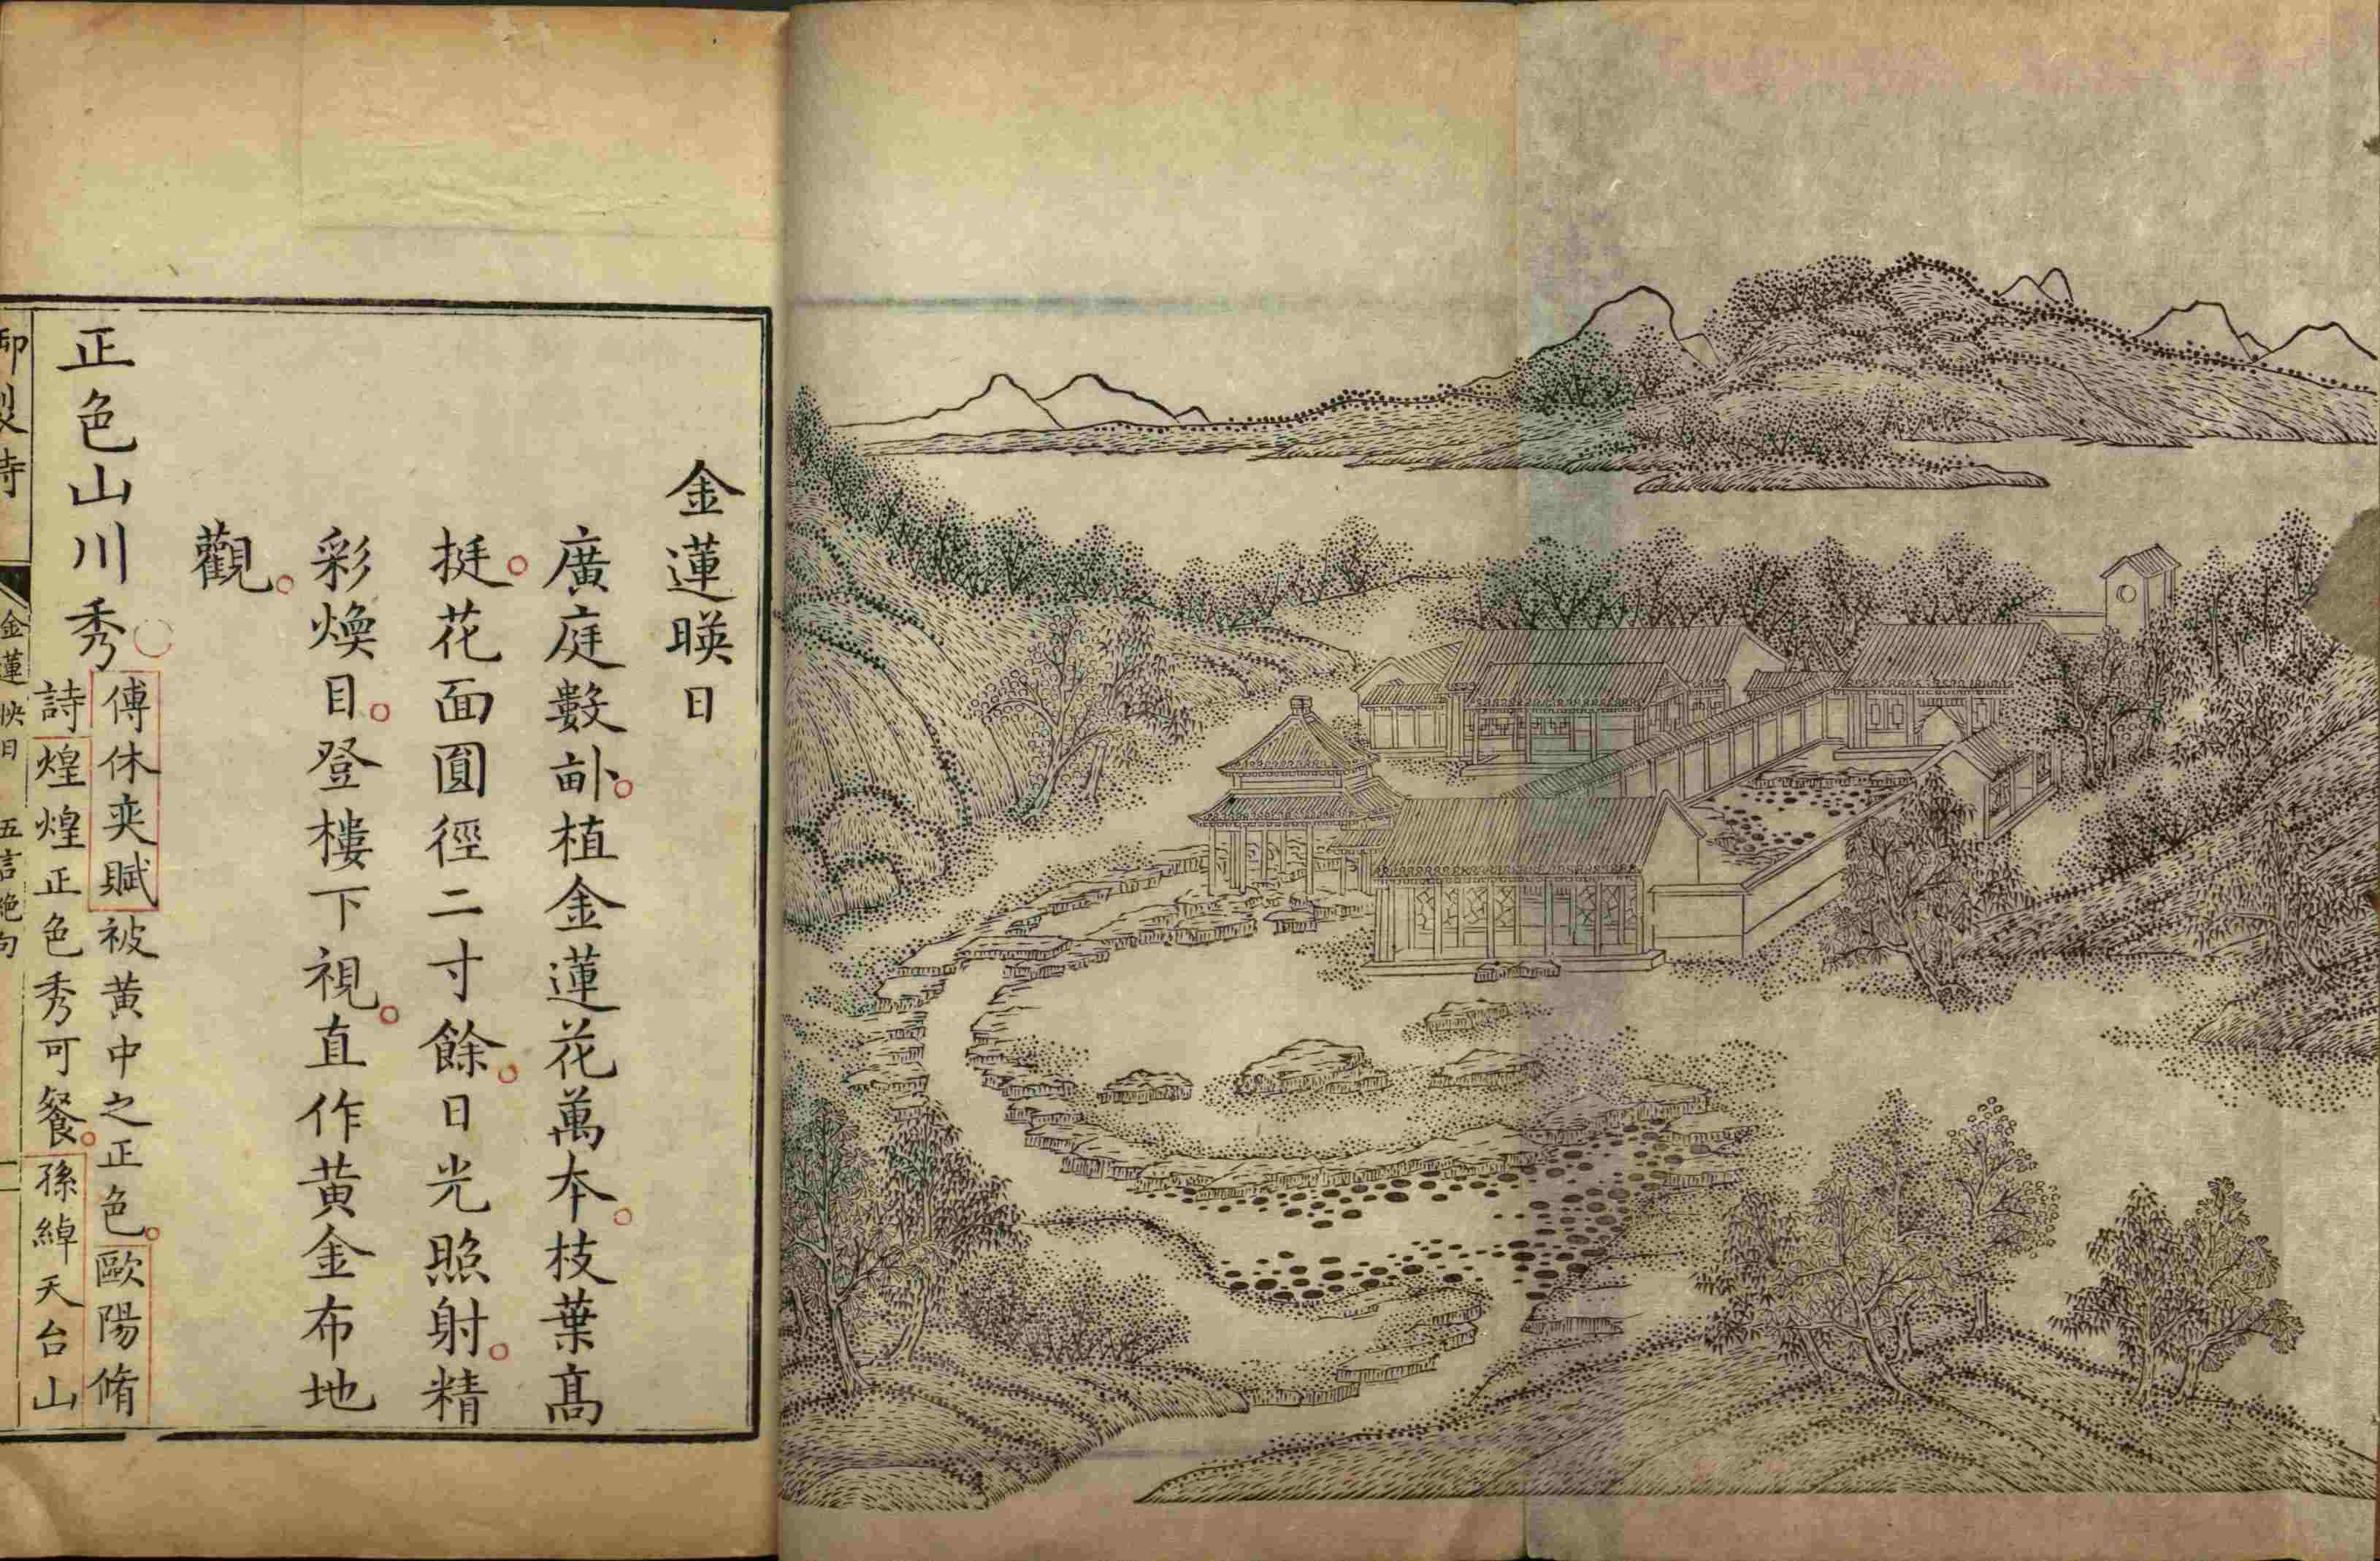 金蓮暎日
廣庭數畝植金蓮花萬本枝葉高
挺花面圓徑二寸餘日光照射精
彩煥目登樓下視直作黄金布地
觀
正色山川秀
傅休奕賦被黄中之正色歐陽脩
詩煌煌正色秀可餐孫綽天台山
御製詩
金蓮暎日
五言絶句